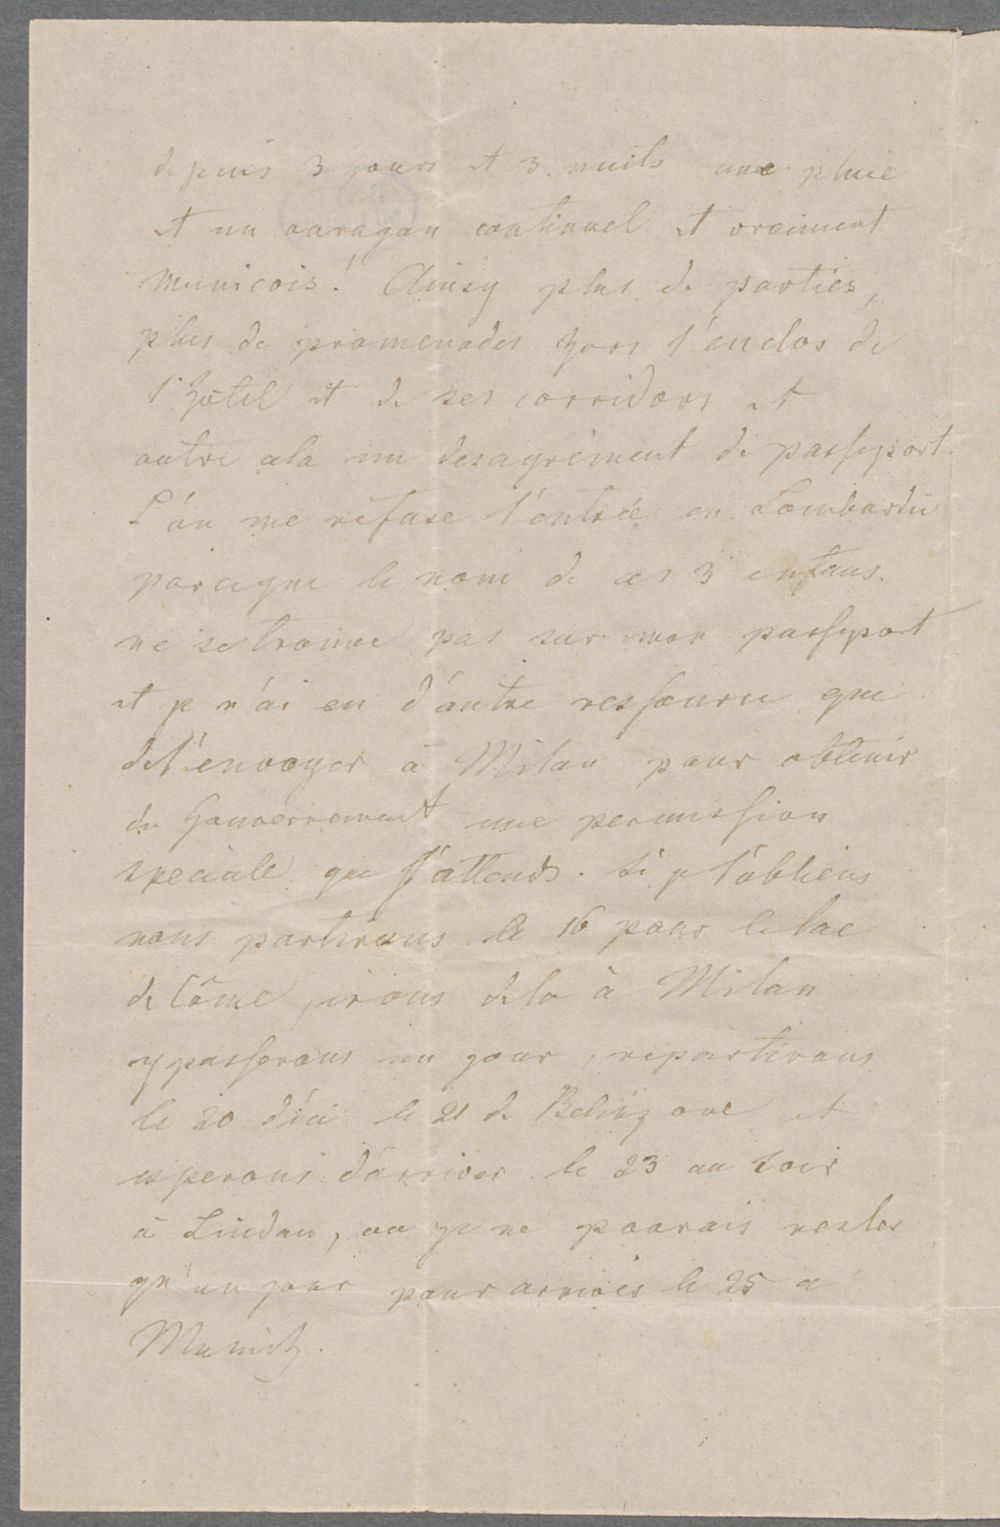 depuis 3 jours et 3 nuits une pluie
et un ouragan continuel et vraiment
municois! Ainsy plus de parties,
plus de promenades hors l'enclos de
l'hôtel et de ses corridors et
outre cela un desagrément de passeport.
L'on me refuse l'entrée en Lombardie
parceque le nom de ces 3 enfans
ne se trouve pas sur mon passeport
et je n'ai eu d'autre ressource que
de l'envoyer à Milan pour obtenir
du Gouvernement une permission
speciale que j'attends. Si je l'obtiens
nous partirons le 16 pour le lac
de Côme, irons dela à Milan
y passerons un jour, repartirons
le 20 d'ici le 21 de Belinzone et
esperons d'arriver le 23 au soir
à Lindau, ou je ne pourais rester
qu'un jour pour arriver le 25 a
Munich.